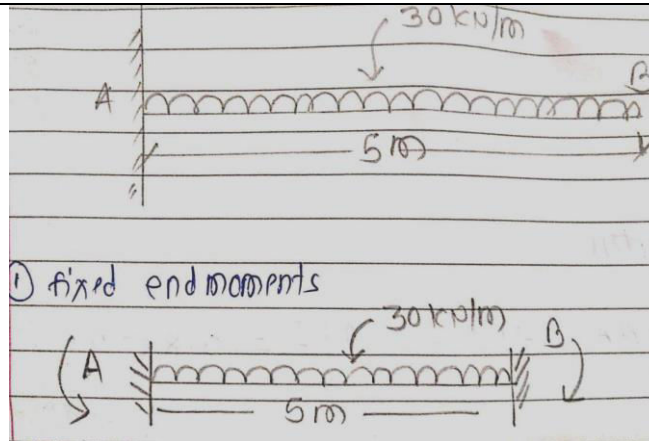 30 kN/m
A B
5m
① fixed end moments
30 kN/m
A B
5m